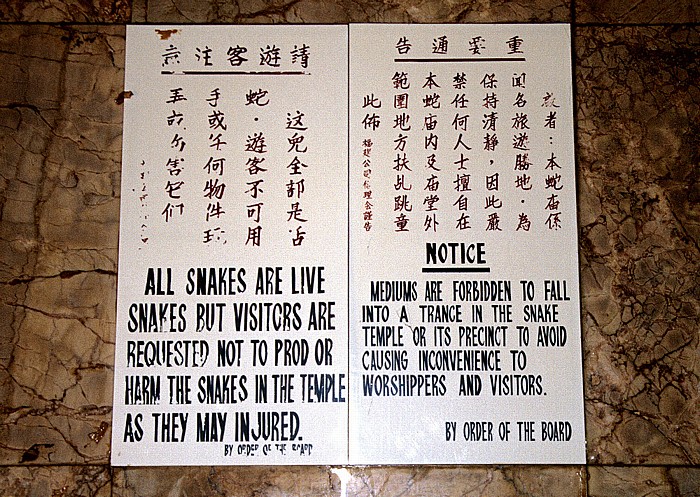 請遊客注意
这兒全部是活
蛇·遊客不可用
手或任何物件玩
害它们
ALL SNAKES ARE LIVE
SNAKES BUT VISITORS ARE
REQUESTED NOT TO PROD OR
HARM THE SNAKES IN THE TEMPLE
AS THEY MAY INJURED.
BY ORDER OF THE BOARD
重要通告
敬者：本蛇庙係
闻名旅遊勝地·為
保持清靜，因此嚴
禁任何人士擅自在
本蛇庙内及庙堂外
範圍地方扶乩跳童
此佈
福建公司理会謹告
NOTICE
MEDIUMS ARE FORBIDDEN TO FALL
INTO A TRANCE IN THE SNAKE
TEMPLE OR ITS PRECINCT TO AVOID
CAUSING INCONVENIENCE TO
WORSHIPPERS AND VISITORS.
BY ORDER OF THE BOARD